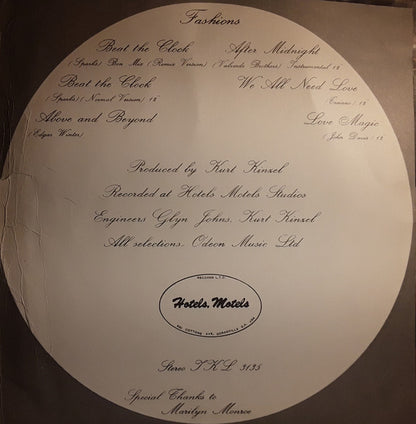 Fashions
Beat the Clock
(Sparks) Ben Mix (Remix Version)
After Midnight
(Valverde Brothers) Instrumental 12
Beat the Clock
(Sparks) (Normal Version) 12
We All Need Love
12
Above and Beyond
(Edgar Winter)
Love Magic
(John Davis) 12
Produced by Kurt Kinzel
Recorded at Hotels Motels Studios
Engineers Glyn Johns, Kurt Kinzel
All selections. Odeon Music Ltd
RECORDS L.T.D.
Hotels, Motels
AVE.
Stereo TKL 3135
Special Thanks to
Marilyn Monroe